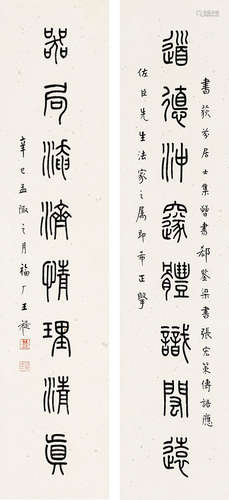 書荻芬居士集晉書郗鑒梁書張宏策傳語應
道德沖邃體識閎遠
佐臣先生法家之屬即希正擘
器局淹濟情理清貞
辛巳孟陬之月福厂王禔